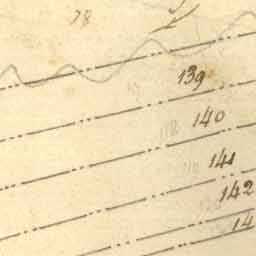 78
139
140
141
142
14